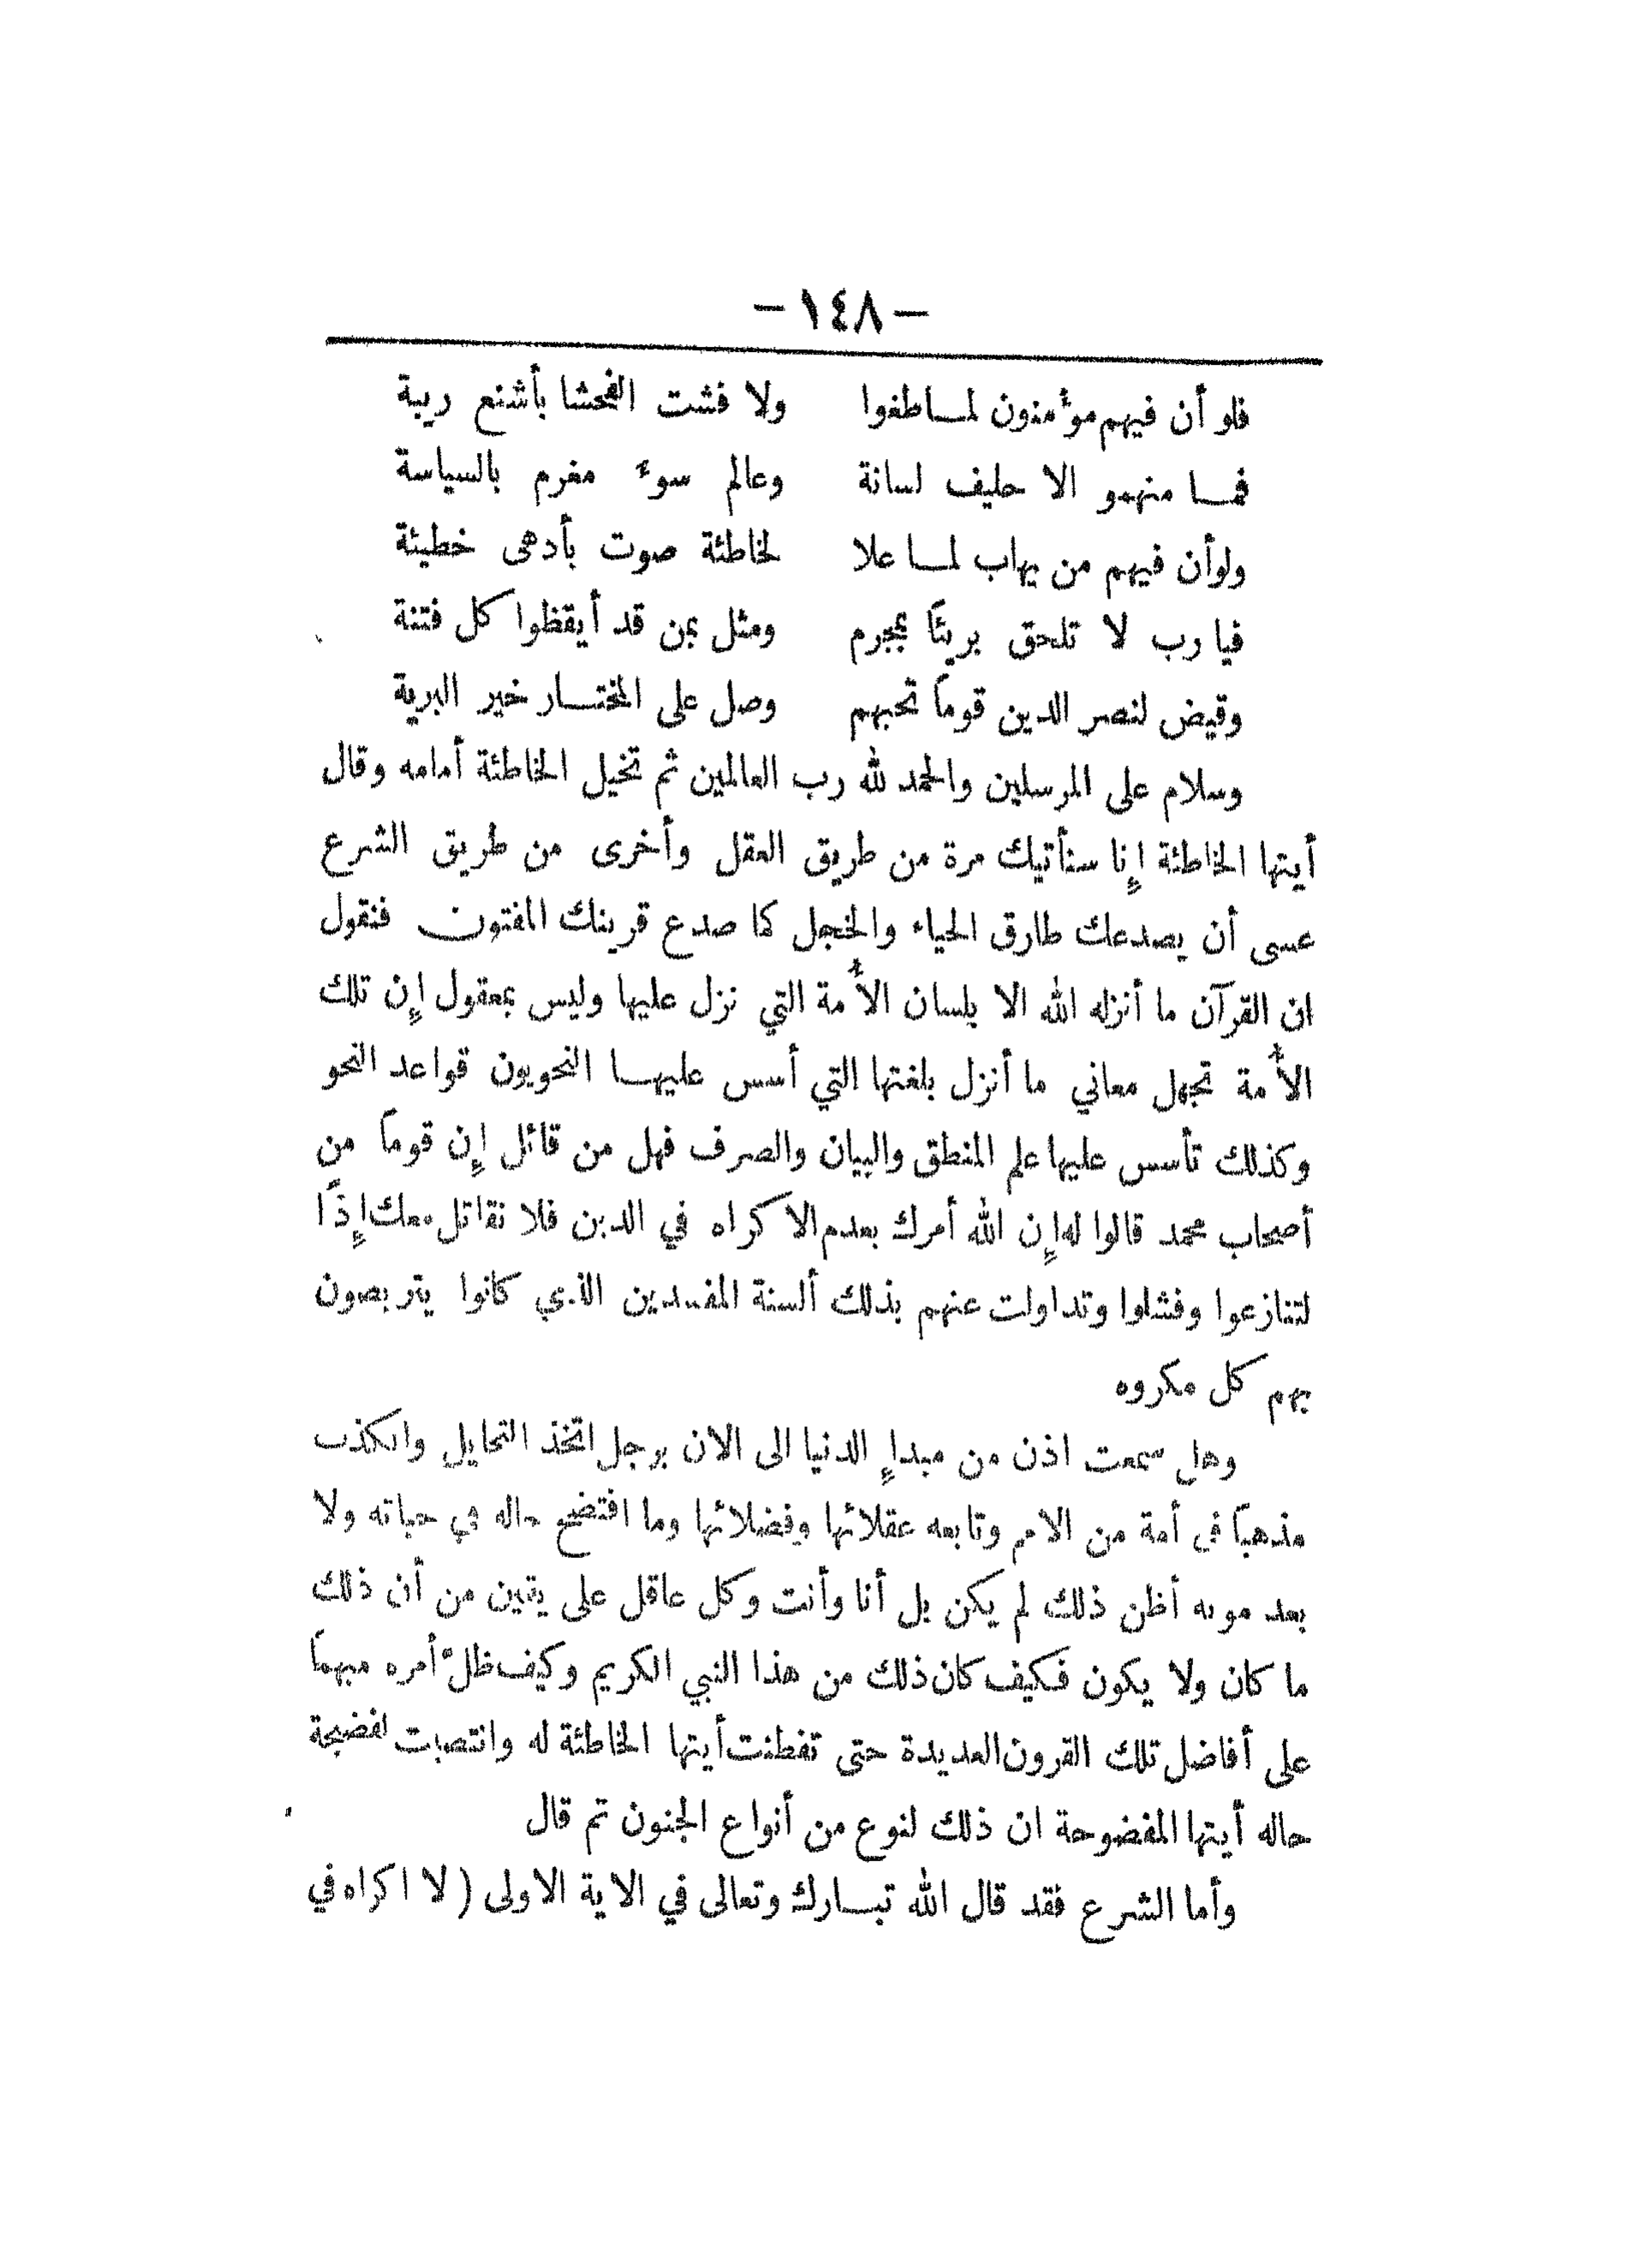 — ١٤٨ —
فلو أن فيهم مؤمنون لما طغوا ولا فشت الفحشا بأشنع ريبة
فما منهمو الا حليف لسانة وعالم سوء مغرم بالسياسة
ولوأن فيهم من يهاب لما علا لخاطئة صوت بأدهى خطيئة
فيا رب لا تلحق بريئاً بمجرم ومثل بمن قد أيقظوا كل فتنة
وقيض لنصر الدين قوماً تحبهم وصل على المختار خير البرية
وسلام على المرسلين والحمد لله رب العالمين ثم تخيل الخاطئة أمامه وقال
أيتها الخاطئة إنا سنأتيك مرة من طريق العقل وأخرى من طريق الشرع
عسى أن يصدعك طارق الحياء والخجل كما صدع قرينك المفتون فنقول
ان القرآن ما أنزله الله الا بلسان الأمة التي نزل عليها وليس بمعقول إن تلك
الأمة تجهل معاني ما أنزل بلغتها التي أسس عليها النحويون قواعد النحو
وكذلك تأسس عليها علم المنطق والبيان والصرف فهل من قائل إن قوماً من
أصحاب محمد قالوا له إن الله أمرك بعدم الاكراه في الدين فلا نقاتل معك إذاً
لتنازعوا وفشلوا وتداولت عنهم بذلك ألسنة المفسدين الذي كانوا يتربصون
بهم كل مكروه
وهل سمعت اذن من مبدإ الدنيا الى الان برجل اتخذ التحايل والكذب
مذهباً في أمة من الامم وتابعه عقلائها وفضلائها وما افتضح حاله في حياته ولا
بعد موته أظن ذلك لم يكن بل أنا وأنت وكل عاقل على يقين من أن ذلك
ما كان ولا يكون فكيف كان ذلك من هذا النبي الكريم وكيف ظل أمره مبهماً
على أفاضل تلك القرون العديدة حتى تفطنت أيتها الخاطئة له وانتصبت لفضيحة
حاله أيتها المفضوحة ان ذلك لنوع من أنواع الجنون تم قال
وأما الشرع فقد قال الله تبارك وتعالى في الاية الاولى ( لا اكراه في